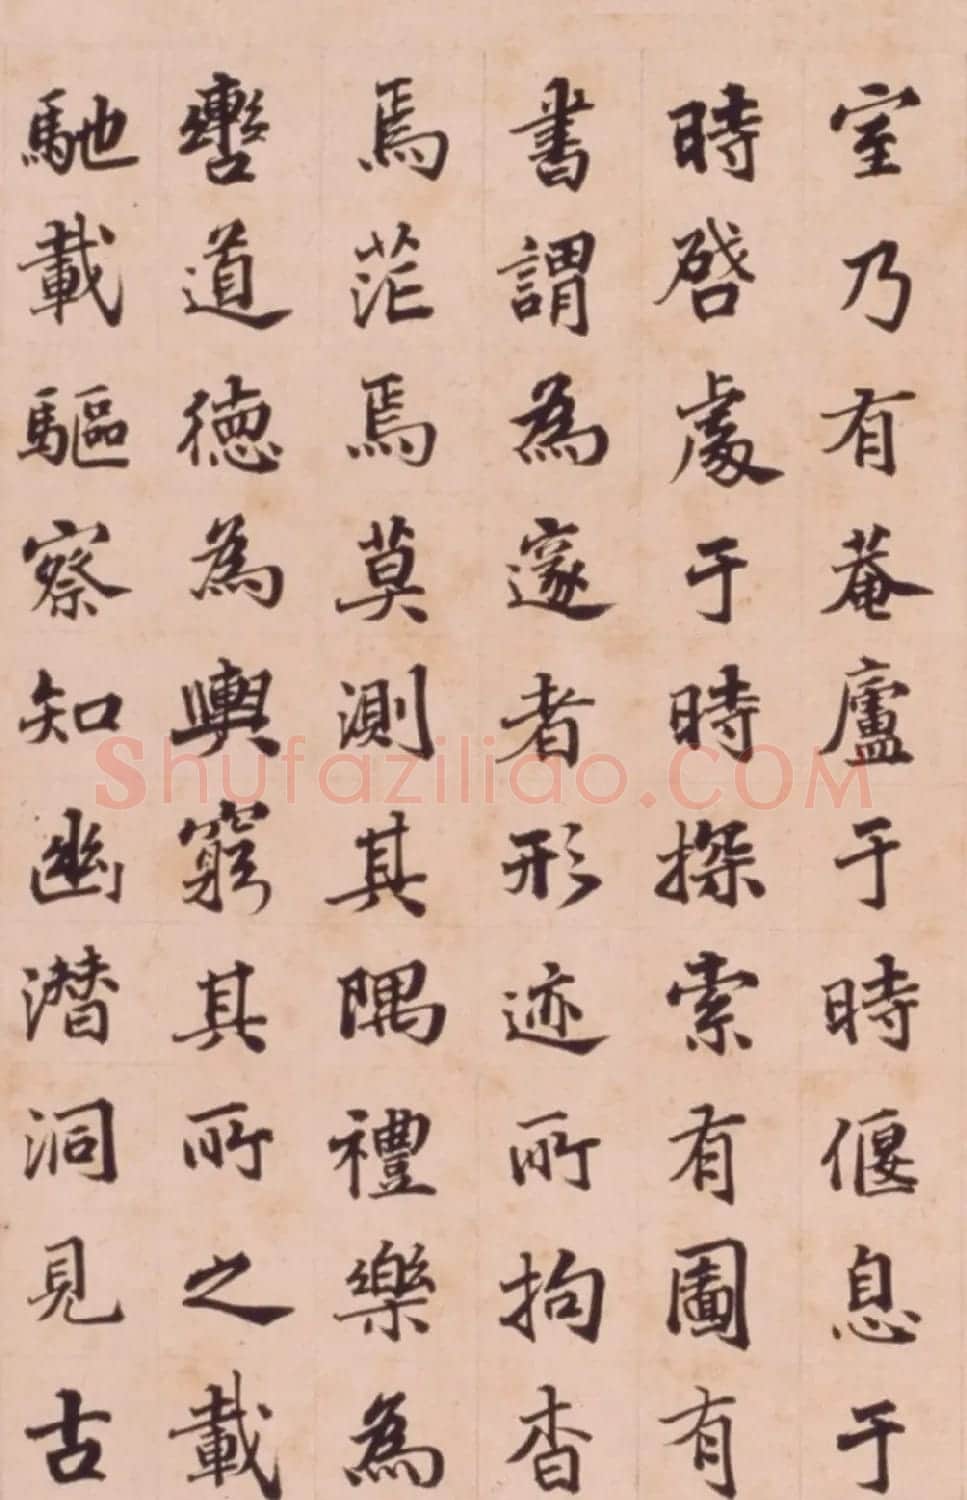 室乃有菴廬于時偃息于
時啓處于時探索有圖有
書謂為邃者形迹所拘杳
焉茫焉莫測其隅禮樂為
轡道德為輿窮其所之載
馳載驅察知幽潛洞見古
Shufaziliao.COM